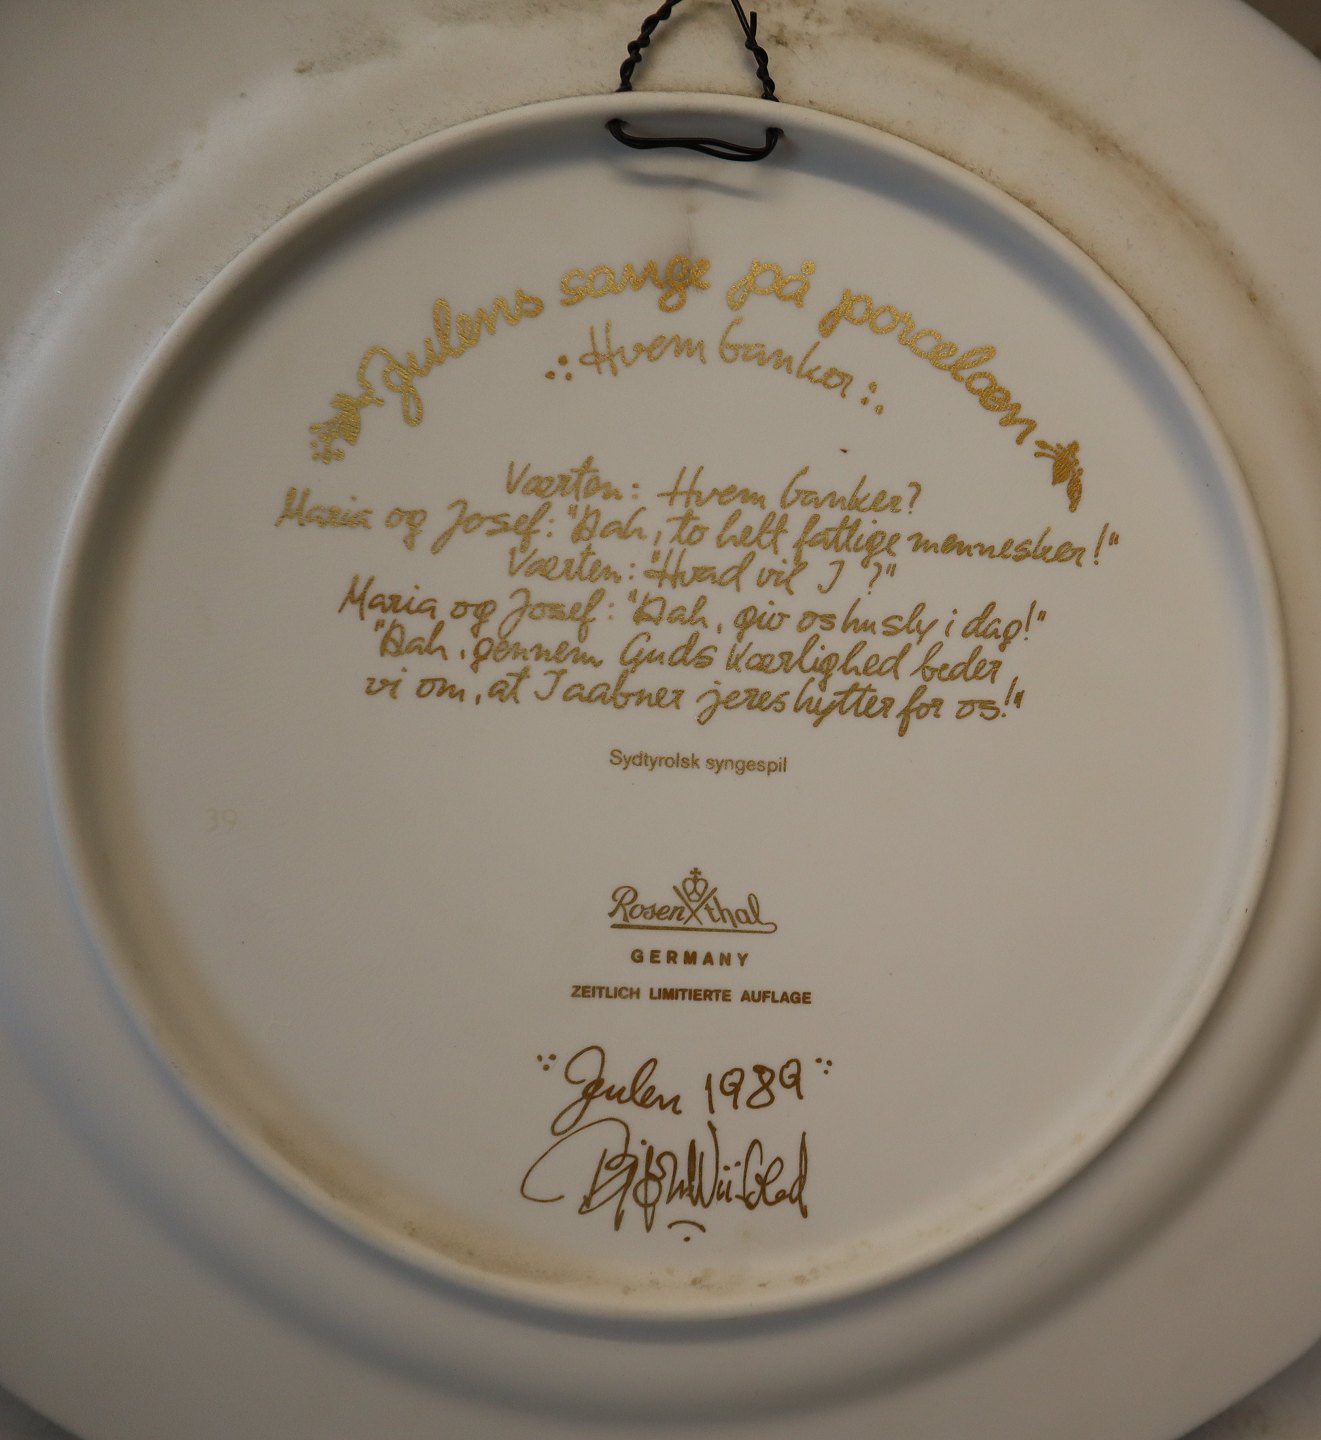 Julens sange på porcelæn
Hvem banker
Værten: Hvem banker?
Maria og Josef: "Aah, to helt fattige mennesker!"
Værten: "Hvad vil I ?"
Maria og Josef: "Aah, giv os husly i dag!"
"Aah, gennem Guds Kærlighed beder
vi om, at I aabner jeres hytter for os!"
Sydtyrolsk syngespil
39
Rosenthal
GERMANY
ZEITLICH LIMITIERTE AUFLAGE
Julen 1989
Bjørn Wiinblad